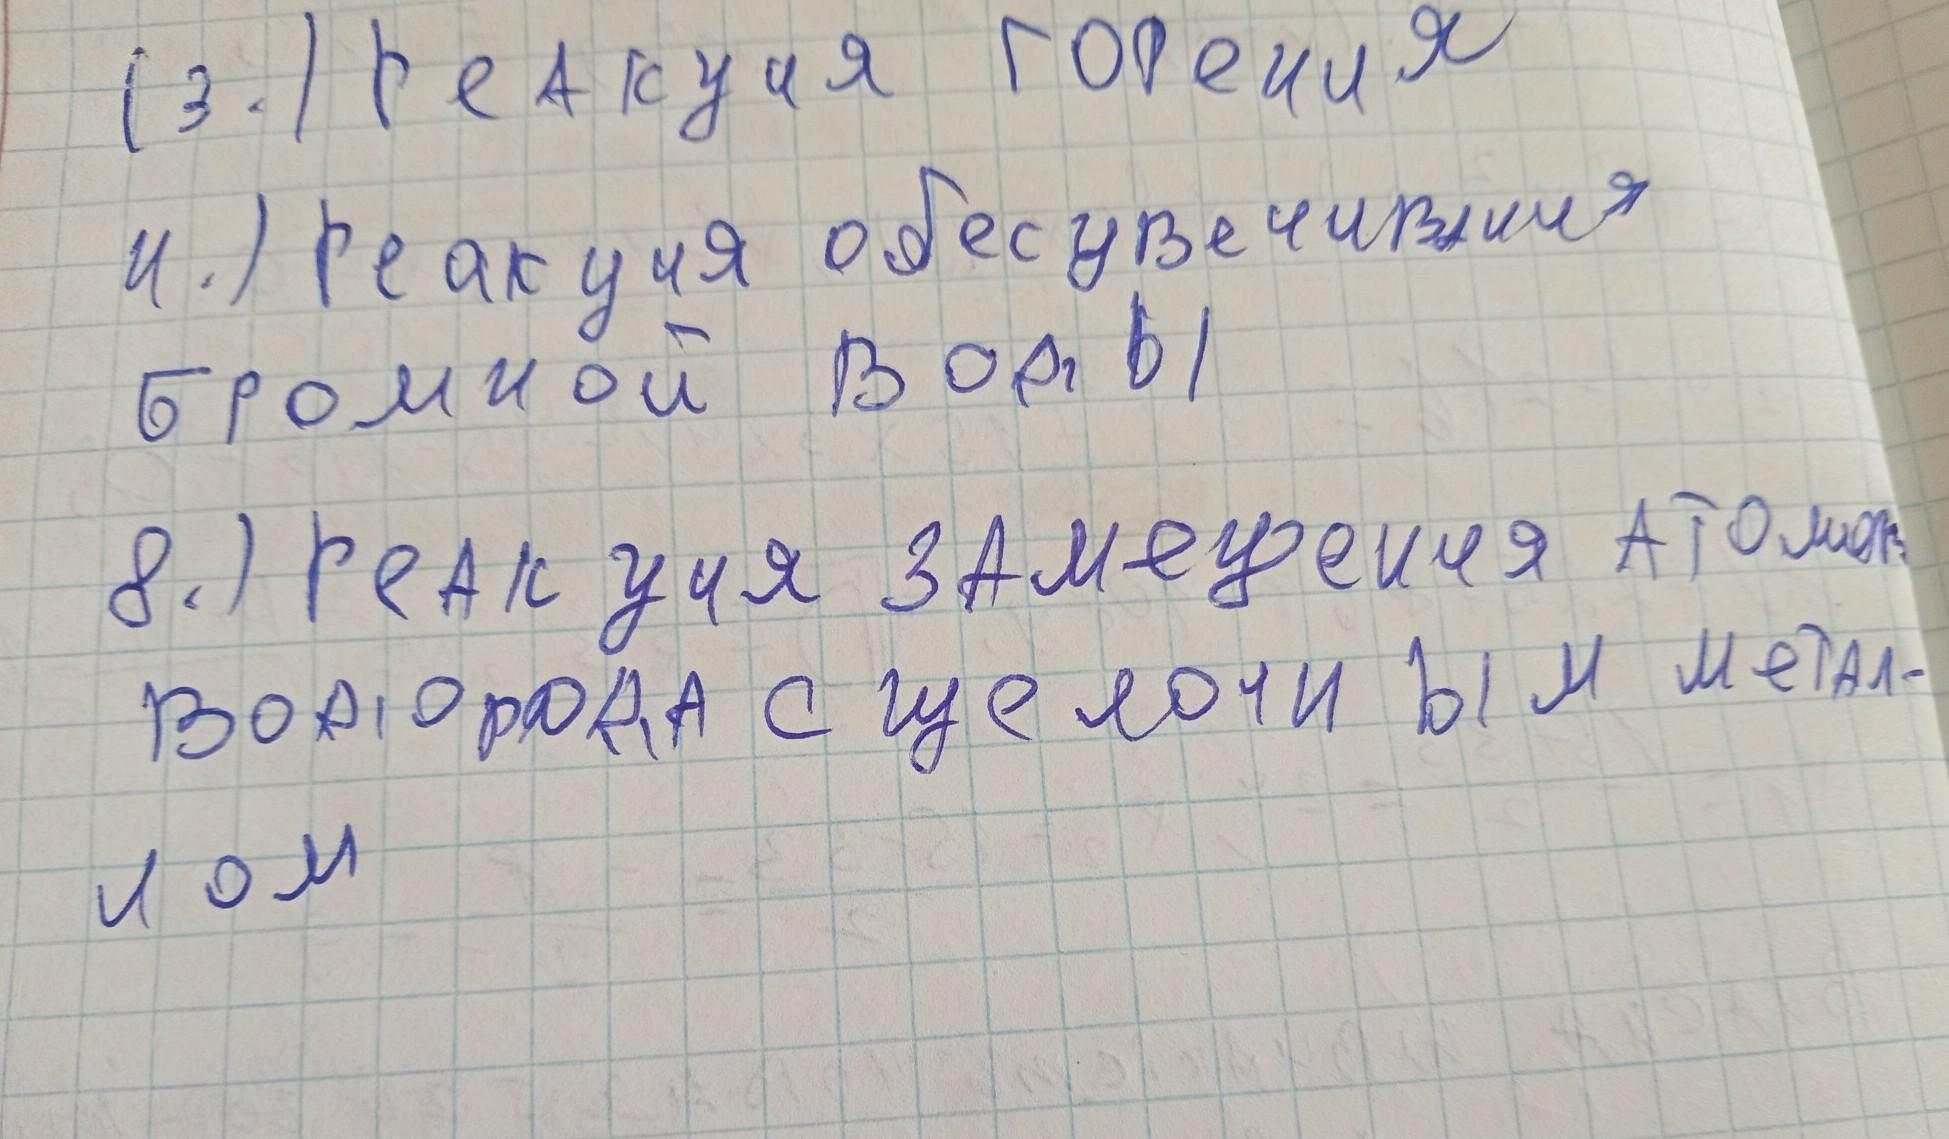 (3.) Реакция горения
4.) Реакция обесцвечивания
бромной воды
8.) Реакция замещения атомов
водорода с щелочным метал-
лом